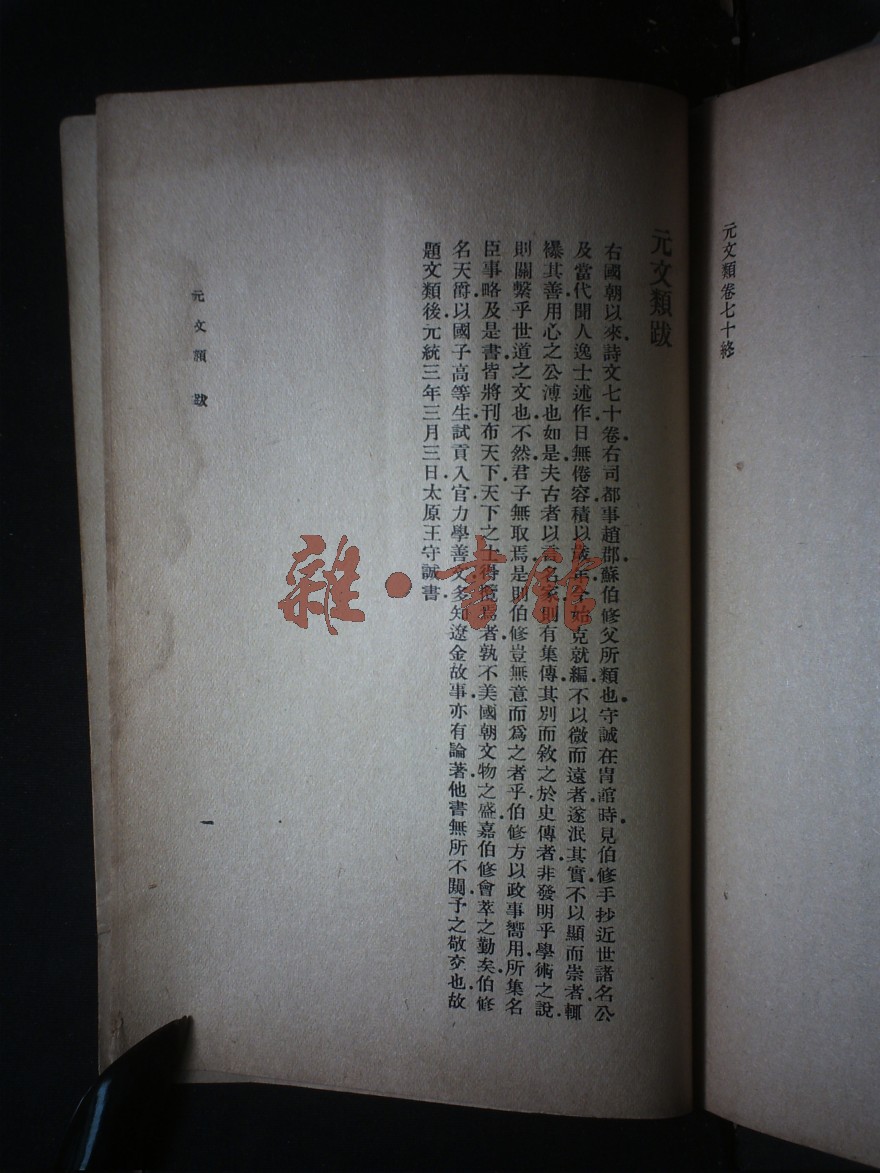 元文類卷七十終
元文類跋
右國朝以來詩文七十卷右司都事趙郡蘇伯修父所類也守誠在胄館時見伯修手抄近世諸名公
及當代聞人逸士述作日無倦容積以歲年今始克就編不以微而遠者遂泯其實不以顯而崇者輒
襮其善用心之公溥也如是夫古者以言名家則有集傳其別而敘之於史傳者非發明乎學術之說
則關繫乎世道之文也不然君子無取焉是則伯修豈無意而爲之者乎伯修方以政事嚮用所集名
臣事略及是書皆將刊布天下天下之士得攬焉者孰不美國朝文物之盛嘉伯修會萃之勤矣伯修
名天爵以國子高等生試貢入官力學善文多知遼金故事亦有論著他書無所不闚予之敬交也故
題文類後元統三年三月三日太原王守誠書
元文類 跋
一
雜·書館